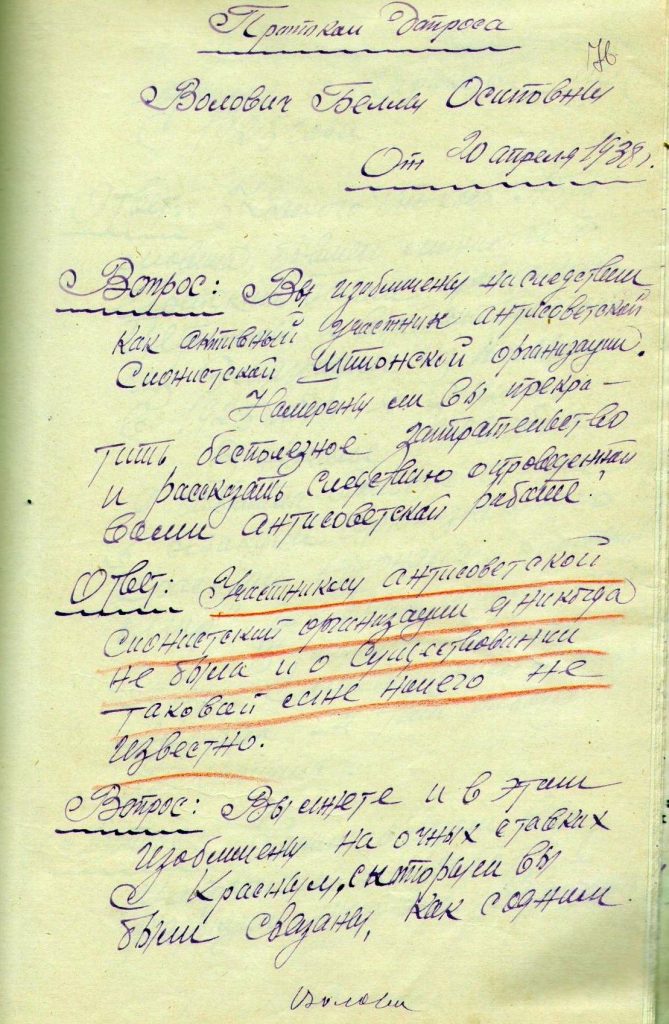 Протокол допроса
76
Волович Беллы Осиповны
От 20 апреля 1938 г.
Вопрос: Вы изобличены наследствии
как активный участник антисоветской
Сионистской Шпионской организации.
Намерены ли вы прекра-
тить бесполезное запирательство
и рассказать следствию о проведенной
вами антисоветской работе?
Ответ: Участником антисоветской
сионистской организации я никогда
не была и о существовании
таковой мне ничего не
известно.
Вопрос: Вы лжете и в этом
изобличены на очных ставках
с Красным, с которым вы
были связаны, как с одним
Волович